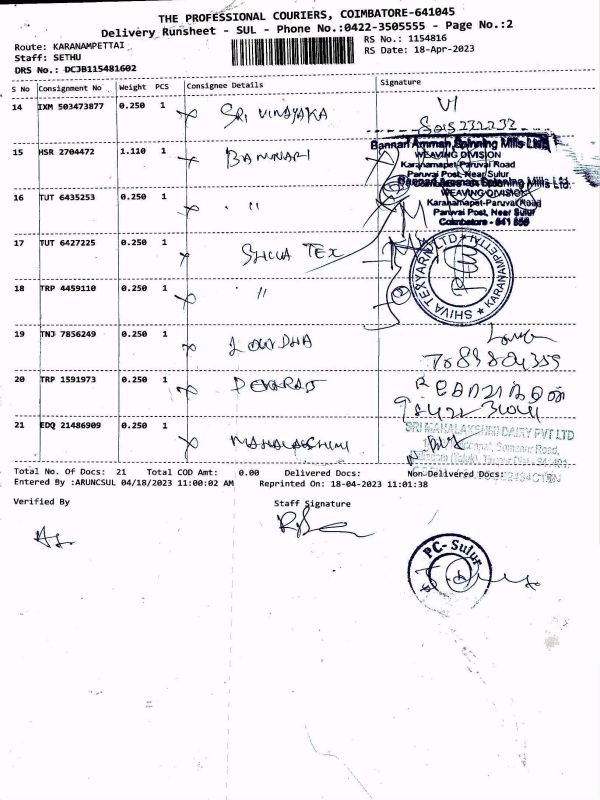 THE PROFESSIONAL COURIERS, COIMBATORE-641045
Delivery Runsheet - SUL - Phone No.:0422-3505555 - Page No.:2
Route: KARANAMPETTAI RS No.: 1154816
Staff: SETHU RS Date: 18-Apr-2023
DRS No.: DCJB115481602
S No Consignment No Weight PCS Consignee Details Signature
14 IXM 503473877 0.250 1 SRI VINAYAKA
15 HSR 2704472 1.110 1 BANNARI
Bannari Amman Spinning Mills Ltd.
WEAVING DIVISION
Karanamapet-Paruvai Road
Paruvai Post, Near Sulur
16 TUT 6435253 0.250 1 "
Bannari Amman Spinning Mills Ltd.
WEAVING DIVISION
Karanamapet-Paruvai Road
Paruvai Post, Near Sulur
Coimbatore - 641 658
17 TUT 6427225 0.250 1 SHIVA TEX
SHIVA TEXYARN LTD * KARANAMPETTAI *
18 TRP 4459110 0.250 1 "
19 TNJ 7856249 0.250 1
20 TRP 1591973 0.250 1 DEVARAJ
21 EDQ 21486909 0.250 1 MAHALAKSHMI
SRI MAHALAKSHMI DAIRY PVT LTD
Somanur Road,
Total No. Of Docs: 21 Total COD Amt: 0.00 Delivered Docs: Non-Delivered Docs:
Entered By :ARUNCSUL 04/18/2023 11:00:02 AM Reprinted On: 18-04-2023 11:01:38
Verified By Staff Signature
PC- Sulur